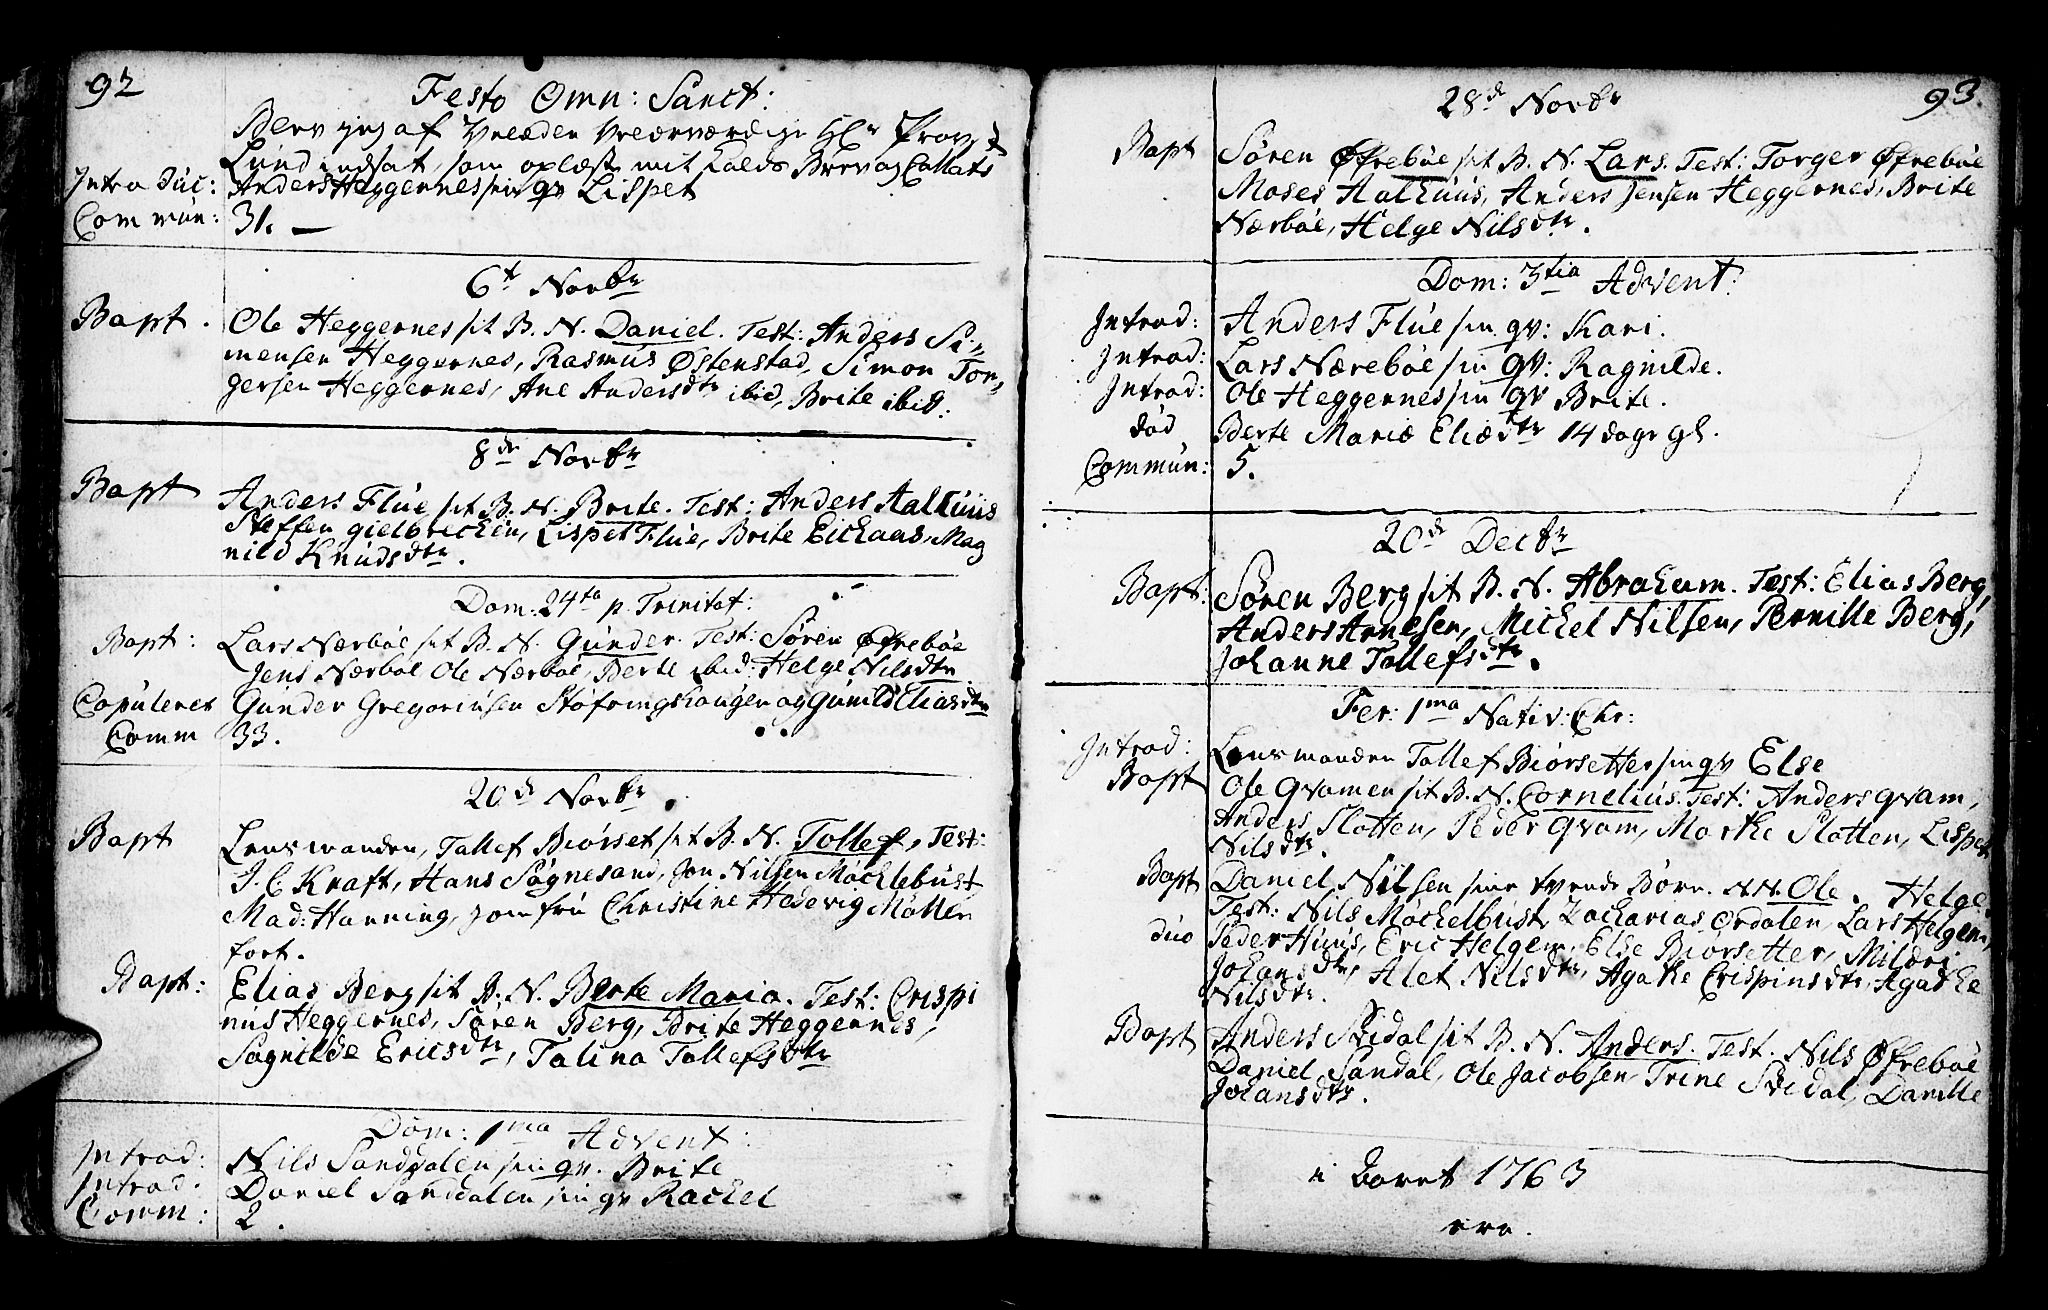 92
Festo Omn: Sanct:
Blev jeg af Velædle Velærværdige Hr Provst
Lund indsat, som oplæste mit Kalds Brev og Collats
Introduc: Anders Heggernes sin qv Lispet
Commun: 31.
6t Novbr
Bapt. Ole Heggernes sit B. N. Daniel. Test: Anders Si„
mensen Heggernes, Rasmus Østenstad, Simon Tor„
gersen Heggernes, Ane Andersdtr ibid, Brite ibid:
8de Novbr
Bapt Anders Flue sit B. N. Brite. Test: Anders Aalhuus
Steffen gielbrechen, Lispet Flue, Brite Eichaas, Mag
nild Knudsdtr.
Dom: 24ta p. Trinitat:
Bapt: Lars Nærbøe sit B. N. Gunder. Test: Søren Øfrebøe
Jens Nærbøe Ole Nærbøe, Berte ibid: Helge Nilsdtr
Copuleret Gunder Gregoriusen Støfringshougen og Gunild Eliasdtr
Comm 33.
20d Novbr.
Bapt Lensmanden, Tollef Biørset sit B. N. Tollef, Test:
J. C Kraft, Hans Søgnesand, Jon Nilsen Møchlebust
Mad: Hanning, Jomfru Christine Hedevig Møllen
fort.
Bapt: Elias Berg sit B. N. Berte Maria. Test: Crispi
nus Heggernes, Søren Berg, Brite Heggernes,
Sagnilde Ericsdtr, Talina Tollefsdtr
Dom: 1ma Advent:
Introd: Nils Sanddalen sin qv. Brite
Introd. Daniel Sanddalen sin qv Rachel
Comm: 2.
93.
28d Novbr
Bapt Søren Øfrebøe sit B. N. Lars. Test: Torger Øfrebøe
Moses Aalhuus, Anders Jensen Heggernes, Brite
Nærbøe, Helge Nilsdtr.
Dom: 3tia Advent:
Introd: Anders Flue sin qv: Kari.
Introd: Lars Nærebøe sin qv: Ragnilde.
Introd: Ole Heggernes sin qv Brite.
død Berte Mariæ Eliædtr 14 dage gl.
Commun: 5.
20d Decbr
Bapt: Søren Berg sit B. N. Abraham. Test: Elias Berg,
Anders Arnesen, Michel Nilsen, Pernille Berg,
Johanne Tollefsdtr.
Fer: 1ma Nativ: Chr:
Introd: Lensmanden Tollef Biørsetter sin qv Else
Bapt Ole Qvamen sit B. N. Cornelius. Test: Anders qvam,
Anders Slotten, Peder Qvam, Marthe Slotten, Lispet
Nilsdtr.
Bapt Daniel Nilsen sine tvende Børn. N. N. Ole. Helge.
duo Test: Nils Møchelbust, Zacharias Ørdalen, Lars Helgem,
Peder Huus, Eric Helgem, Else Biørsetter, Mildri
Johansdtr, Alet Nilsdtr, Agathe Crispinsdtr, Agathe
Nilsdtr.
Bapt Anders Skidal sit B. N. Anders. Test. Nils Øfrebøe
Daniel Sandal, Ole Jacobsen, Trine Skidal, Danille
Johansdtr.
i Aaret 1763